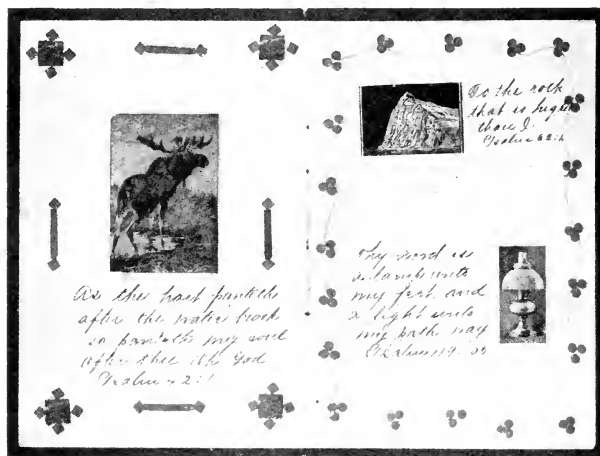 As the hart panteth
after the water brook
so panteth my soul
after thee oh God
Psalm 42:1
To the rock
that is higher
than I.
Psalm 62:2
Thy word is
a lamp unto
my feet and
a light unto
my path way
Psalm 119: